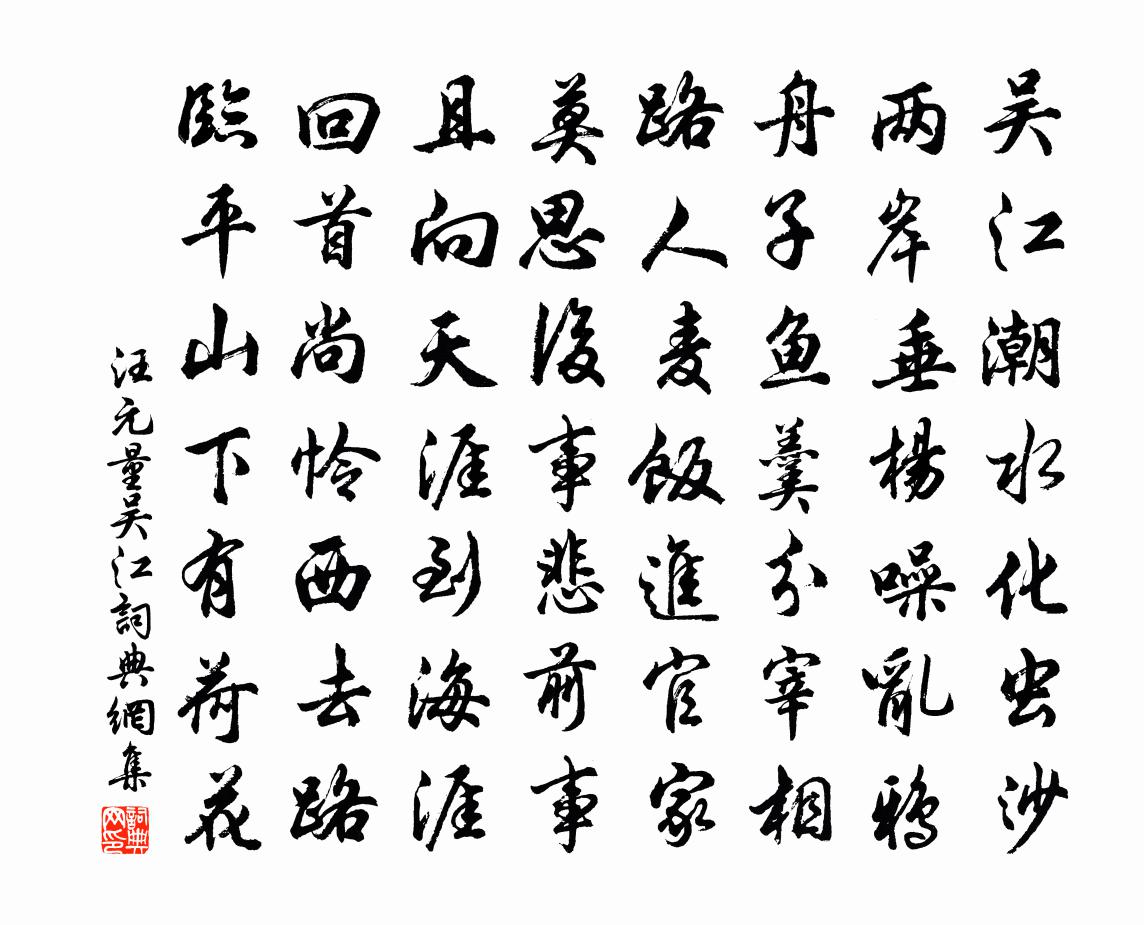 吴江潮水化虫沙
两岸垂楊噪亂鸦
舟子鱼羹分宰相
路人麦飯進官家
莫思後事悲前事
且向天涯到海涯
回首尚怜西去路
臨平山下有荷花
汪元量吴江詞典網集
詞典网印